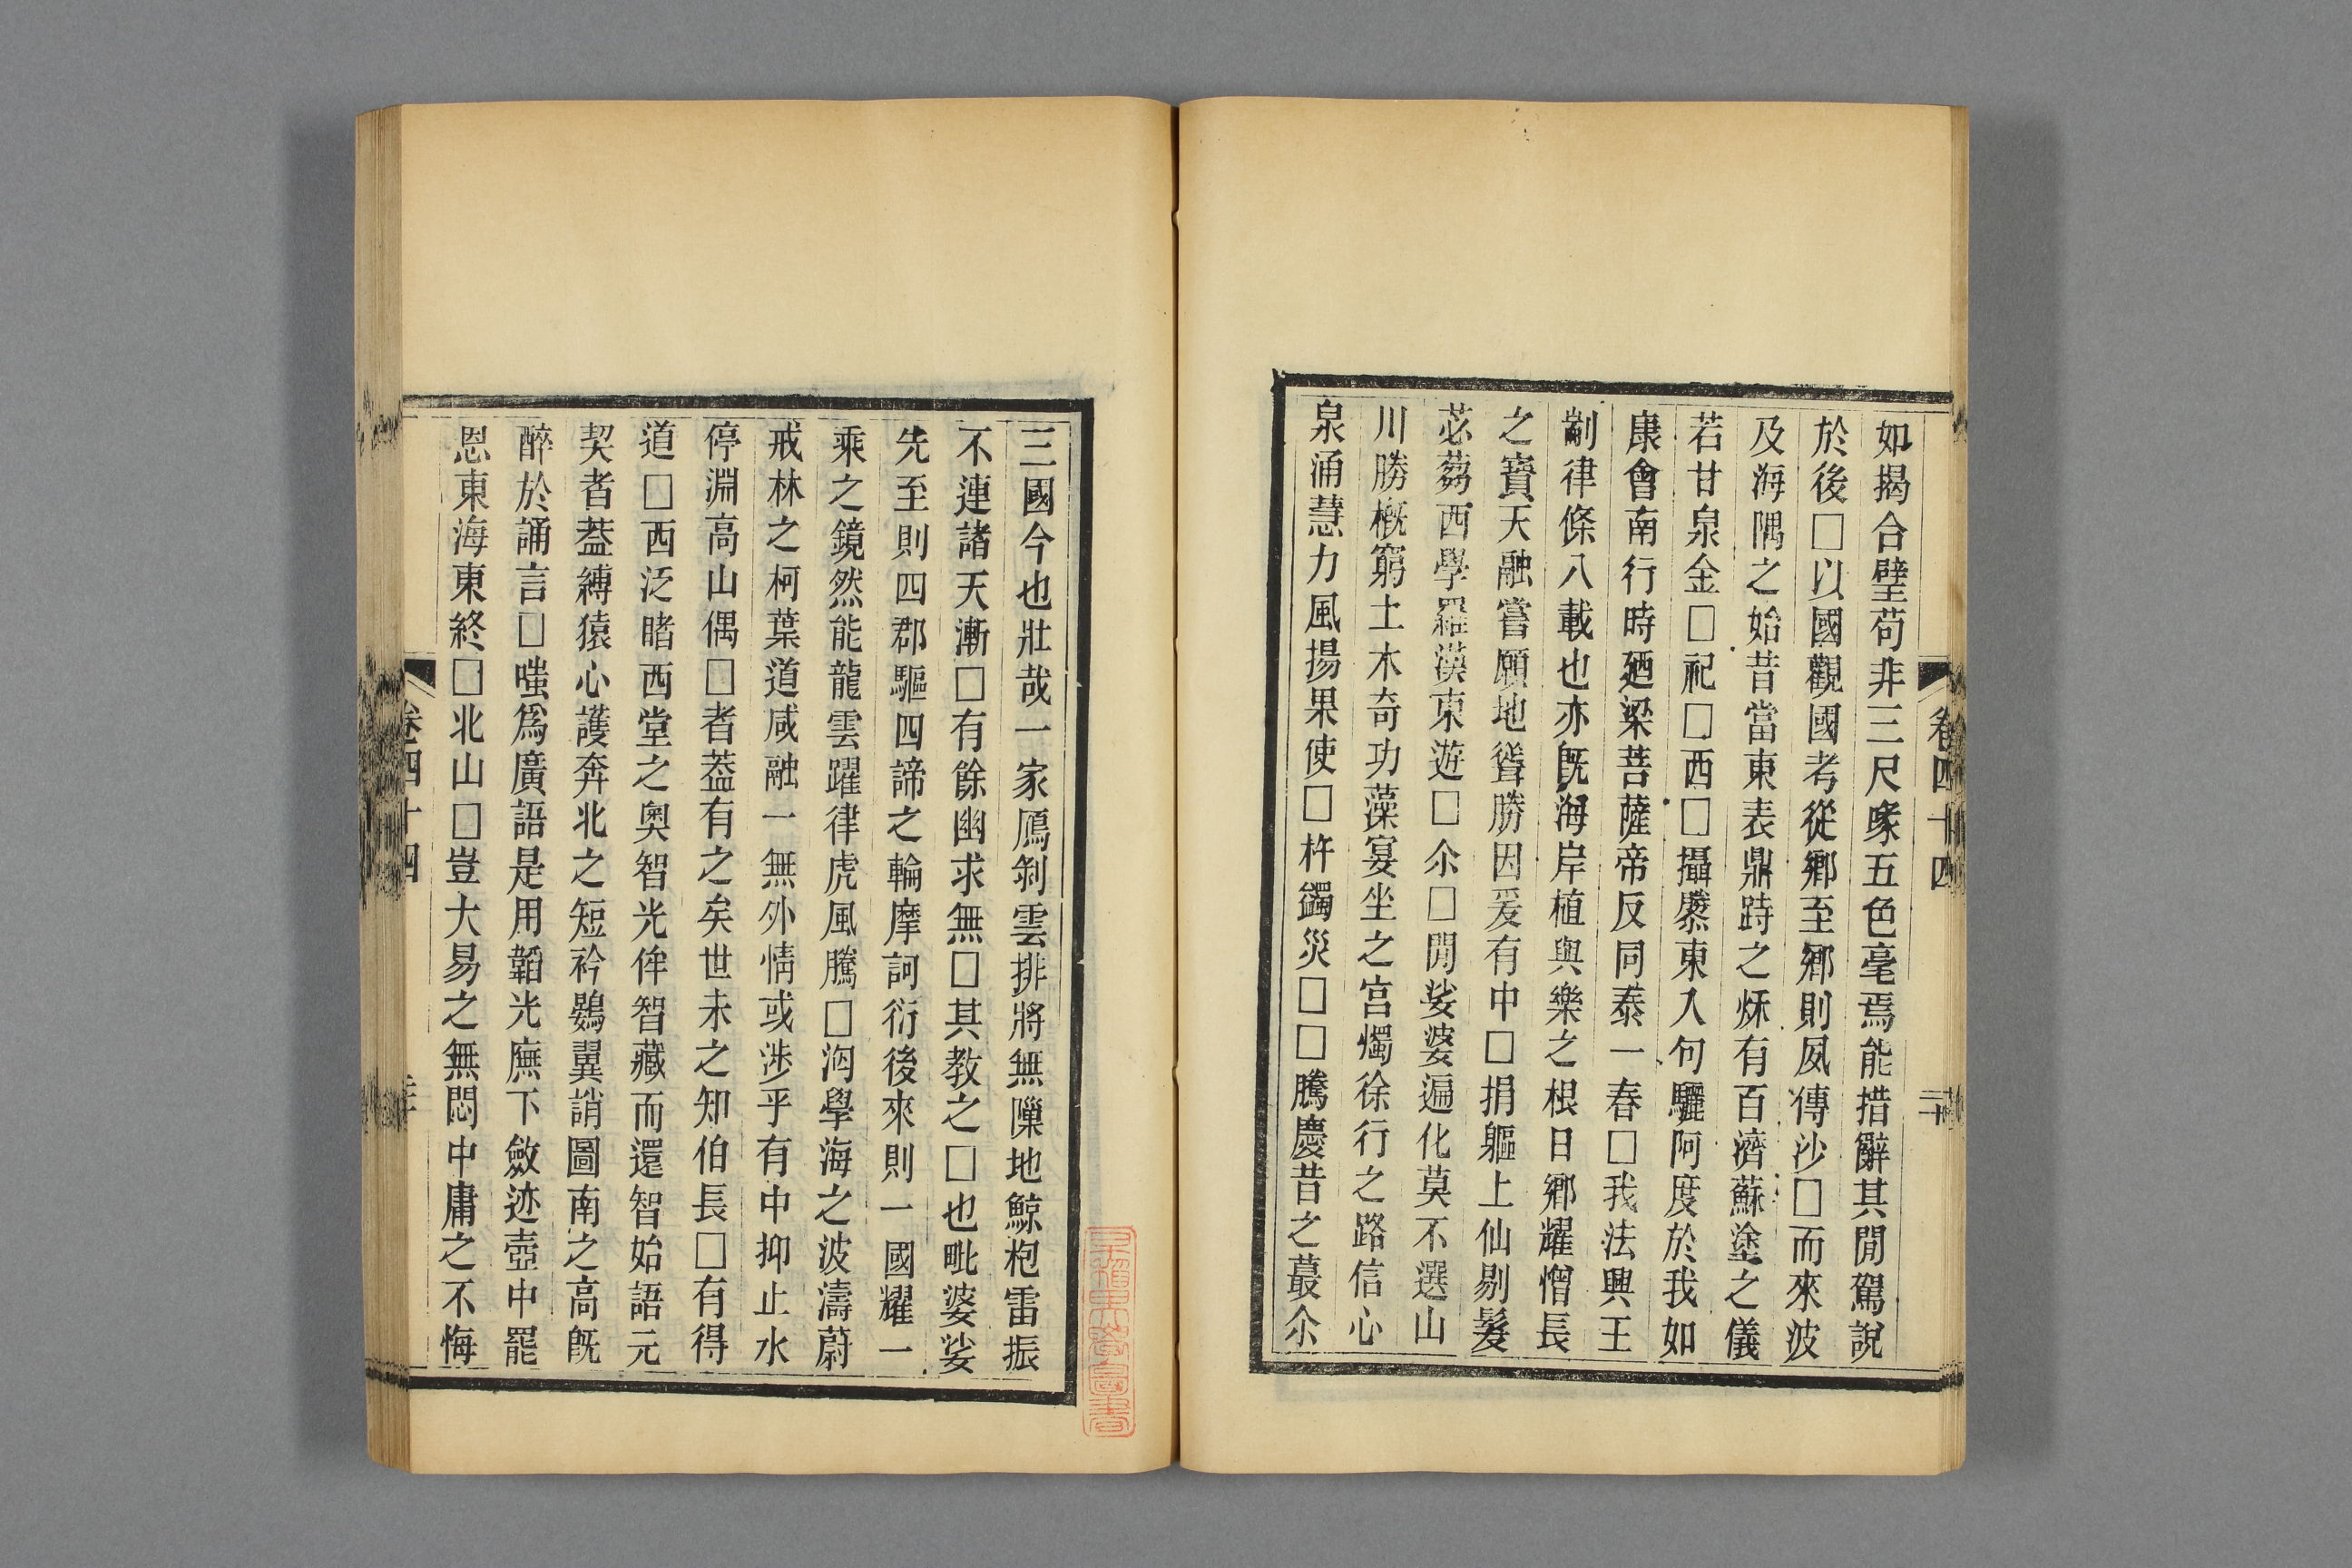 卷四十四
二十
如揭合璧苟非三尺喙五色毫焉能措辭其閒駕說
於後□以國觀國考從鄉至鄉則夙傳沙□而來波
及海隅之始昔當東表鼎跱之秌有百濟蘇塗之儀
若甘泉金□祀□西□攝騰東入句驪阿度於我如
康會南行時廼梁菩薩帝反同泰一春□我法興王
剬律條八載也亦旣海岸植與樂之根日鄉耀憎長
之寶天融嘗願地聳勝因爰有中□捐軀上仙剔髮
苾蒭西學羅漢東遊□尒□閒娑婆遍化莫不選山
川勝槪窮土木奇功藻宴坐之宮燭徐行之路信心
泉涌慧力風揚果使□杵蠲災□□騰慶昔之蕞尒
三國今也壯哉一家鴈刹雲排將無隟地鯨枹雷振
不連諸天漸□有餘幽求無□其教之□也毗婆娑
先至則四郡驅四諦之輪摩訶衍後來則一國耀一
乘之鏡然能龍雲躍律虎風騰□洶學海之波濤蔚
戒林之柯葉道咸融一無外情或涉乎有中抑止水
停淵高山偶□者葢有之矣世未之知伯長□有得
道□西泛睹西堂之奧智光侔智藏而還智始語元
契者葢縛猿心護奔北之短衿鷃翼誚圖南之高旣
醉於誦言□嗤爲廣語是用韜光廡下斂迹壺中罷
恩東海東終□北山□豈大易之無悶中庸之不悔
卷四十四